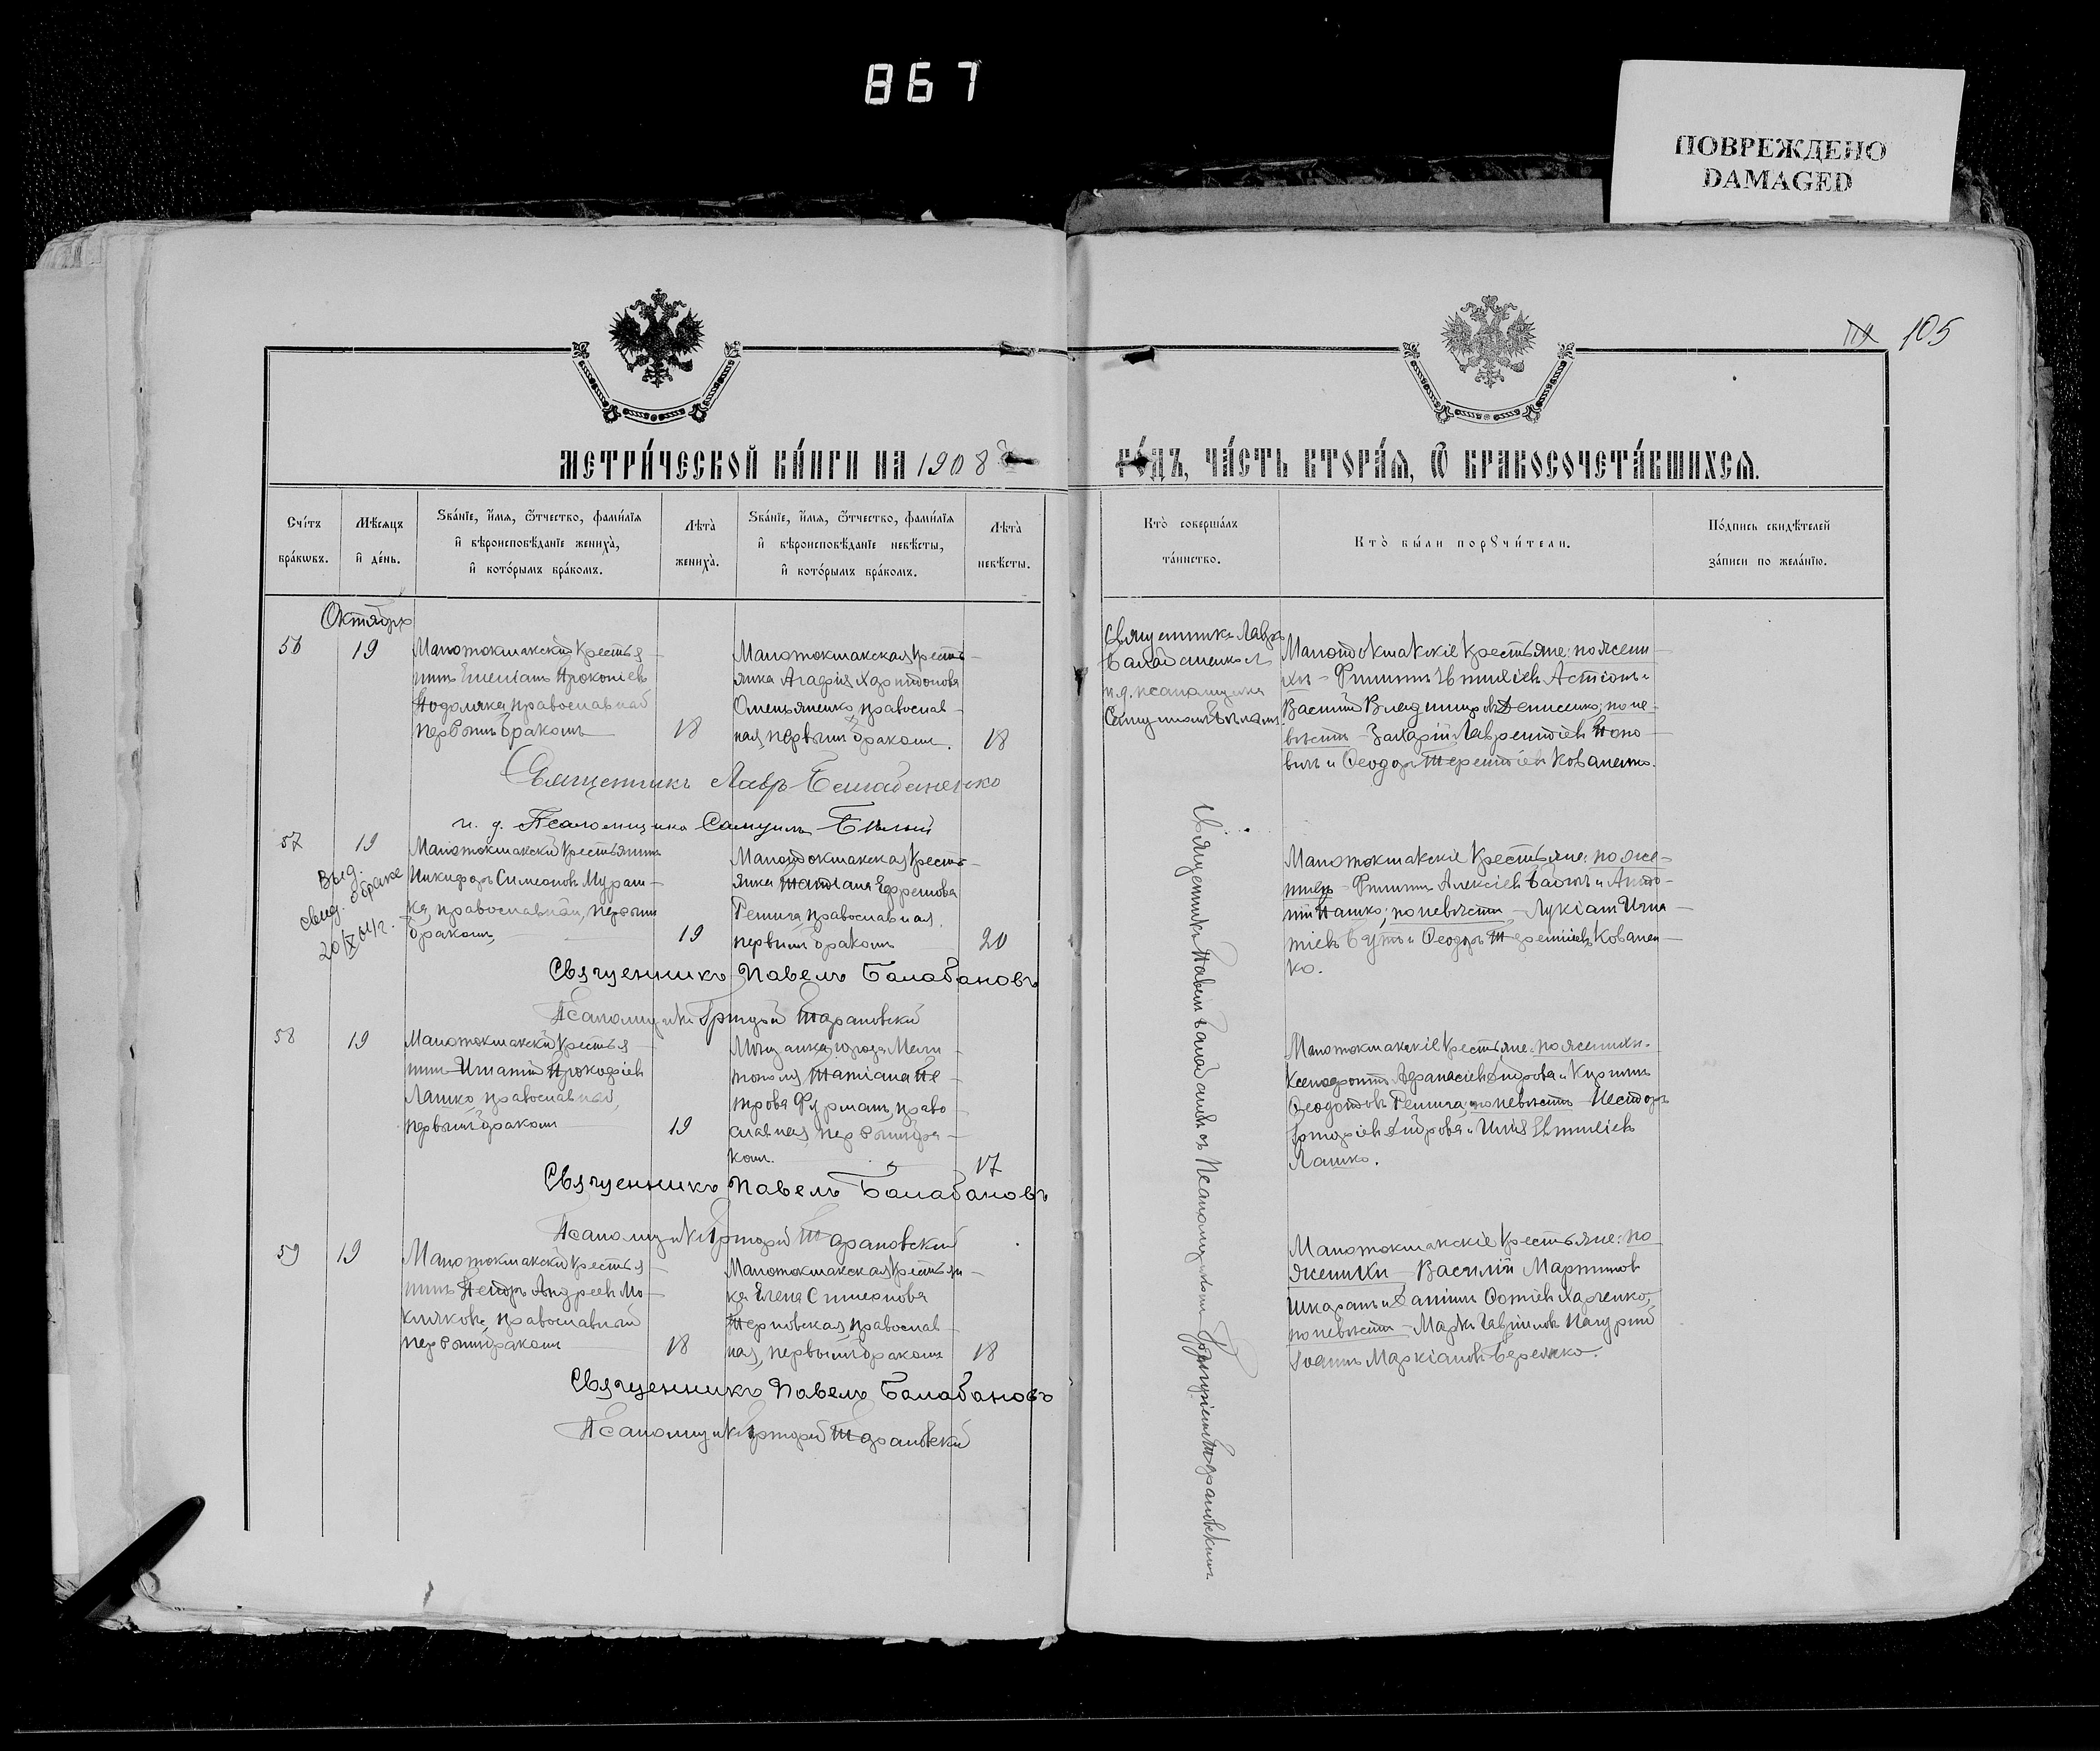 867
ПОВРЕЖДЕНО
DAMAGED
105
МЕТРИ́ЧЕСКОЙ КНИ́ГИ НА 1908
ГО́ДЪ, ЧА́СТЬ ВТОРА́Ѧ, Ѽ БРАКОСОЧЕТА́ВШИХСѦ.
Сче́тъ бра́кѡвъ.
Мѣ́сѧцъ и҆ де́нь.
Ѕва́нїе, и҆́мѧ, ѻ҆́тчество, фами́лїѧ
и҆ вѣроисповѣ́данїе жениха̀,
и҆ кото́рымъ бра́комъ.
Лѣта̀ жениха̀.
Ѕва́нїе, и҆́мѧ, ѻ҆́тчество, фами́лїѧ
и҆ вѣроисповѣ́данїе невѣ́сты,
и҆ кото́рымъ бра́комъ.
Лѣта̀ невѣ́сты.
Кто̀ соверша́лъ та́инство.
Кто̀ бы́ли порꙋчи́тели.
По́дпись свидѣ́телей за́писи по жела́нїю.
Октября
56
19
Малотокмакский крестья-
нинъ Прокопіевъ
Подоляка, православный
первымъ бракомъ
18
Малотокмакская кресть-
янка Агафія Харитонова
Омельяненко, православ-
ная, первымъ бракомъ.
18
Священникъ Лавръ
Балабаненко съ
и.д. псаломщика
Самуиломъ Бѣлымъ.
Малотокмакскіе крестьяне: по жени-
хѣ - Филиппъ
Василій Владиміровъ Денисенко; по не-
вѣстѣ - Захарій Лаврентіевъ Попо-
вичъ и Ѳеодоръ Терентіевъ Коваленко.
Священникъ Лавръ Балабаненко
и. д. Псаломщика Самуилъ Бѣлый
57
19
Выд.
свид. о браке
Малотокмакский крестьянинъ
Никифоръ Симеоновъ Мураш-
ка, православный, первымъ
бракомъ,
19
Малотокмакская кресть-
янка Татіана Ефремова
Гешича, православная,
первымъ бракомъ
20
Малотокмакскіе крестьяне: по же-
нихѣ - Филиппъ Алексіевъ и Анто-
ній Пашко; по невѣстѣ - Лукіанъ Игна-
тіевъ Бутъ и Ѳеодоръ Терентіевъ Ковален-
ко.
Священникъ Павелъ Балабановъ
Псаломщикъ Григорій Тарановский
58
19
Малотокмакский крестья-
нинъ Игнатій Прокофіевъ
Лашко, православный,
первымъ бракомъ
19
Мѣщанка города Мели-
тополя Татіана Пе-
трова Фурманъ, право-
славная, первымъ бра-
комъ.
17
Малотокмакскіе крестьяне: по женихѣ -
Ксенофонтъ Афанасіевъ Дідрова и
Ѳеодотовъ Гешича; по невѣстѣ - Несторъ
Григоріевъ Дідрова и Илія
Лашко.
Священникъ Павелъ Балабановъ
Псаломщикъ Григорій Тарановский
59
19
Малотокмакский крестья-
нинъ Андреевъ Мо-
кляковъ, православный
первымъ бракомъ
18
Малотокмакская крестьян-
ка Елена Симеонова
Терновская, православ-
ная, первымъ бракомъ
18
Малотокмакскіе крестьяне: по
женихѣ - Василій Мартиновъ
Шкарапъ и Даніилъ Фотіевъ Харченко,
по невѣстѣ - Маркъ Гавриловъ
Іоаннъ Маркіановъ Бережко.
Священникъ Павелъ Балабановъ
Псаломщикъ Григорій Тарановский
Священникъ Павелъ Балабановъ съ Псаломщикомъ Григоріемъ Тарановскимъ